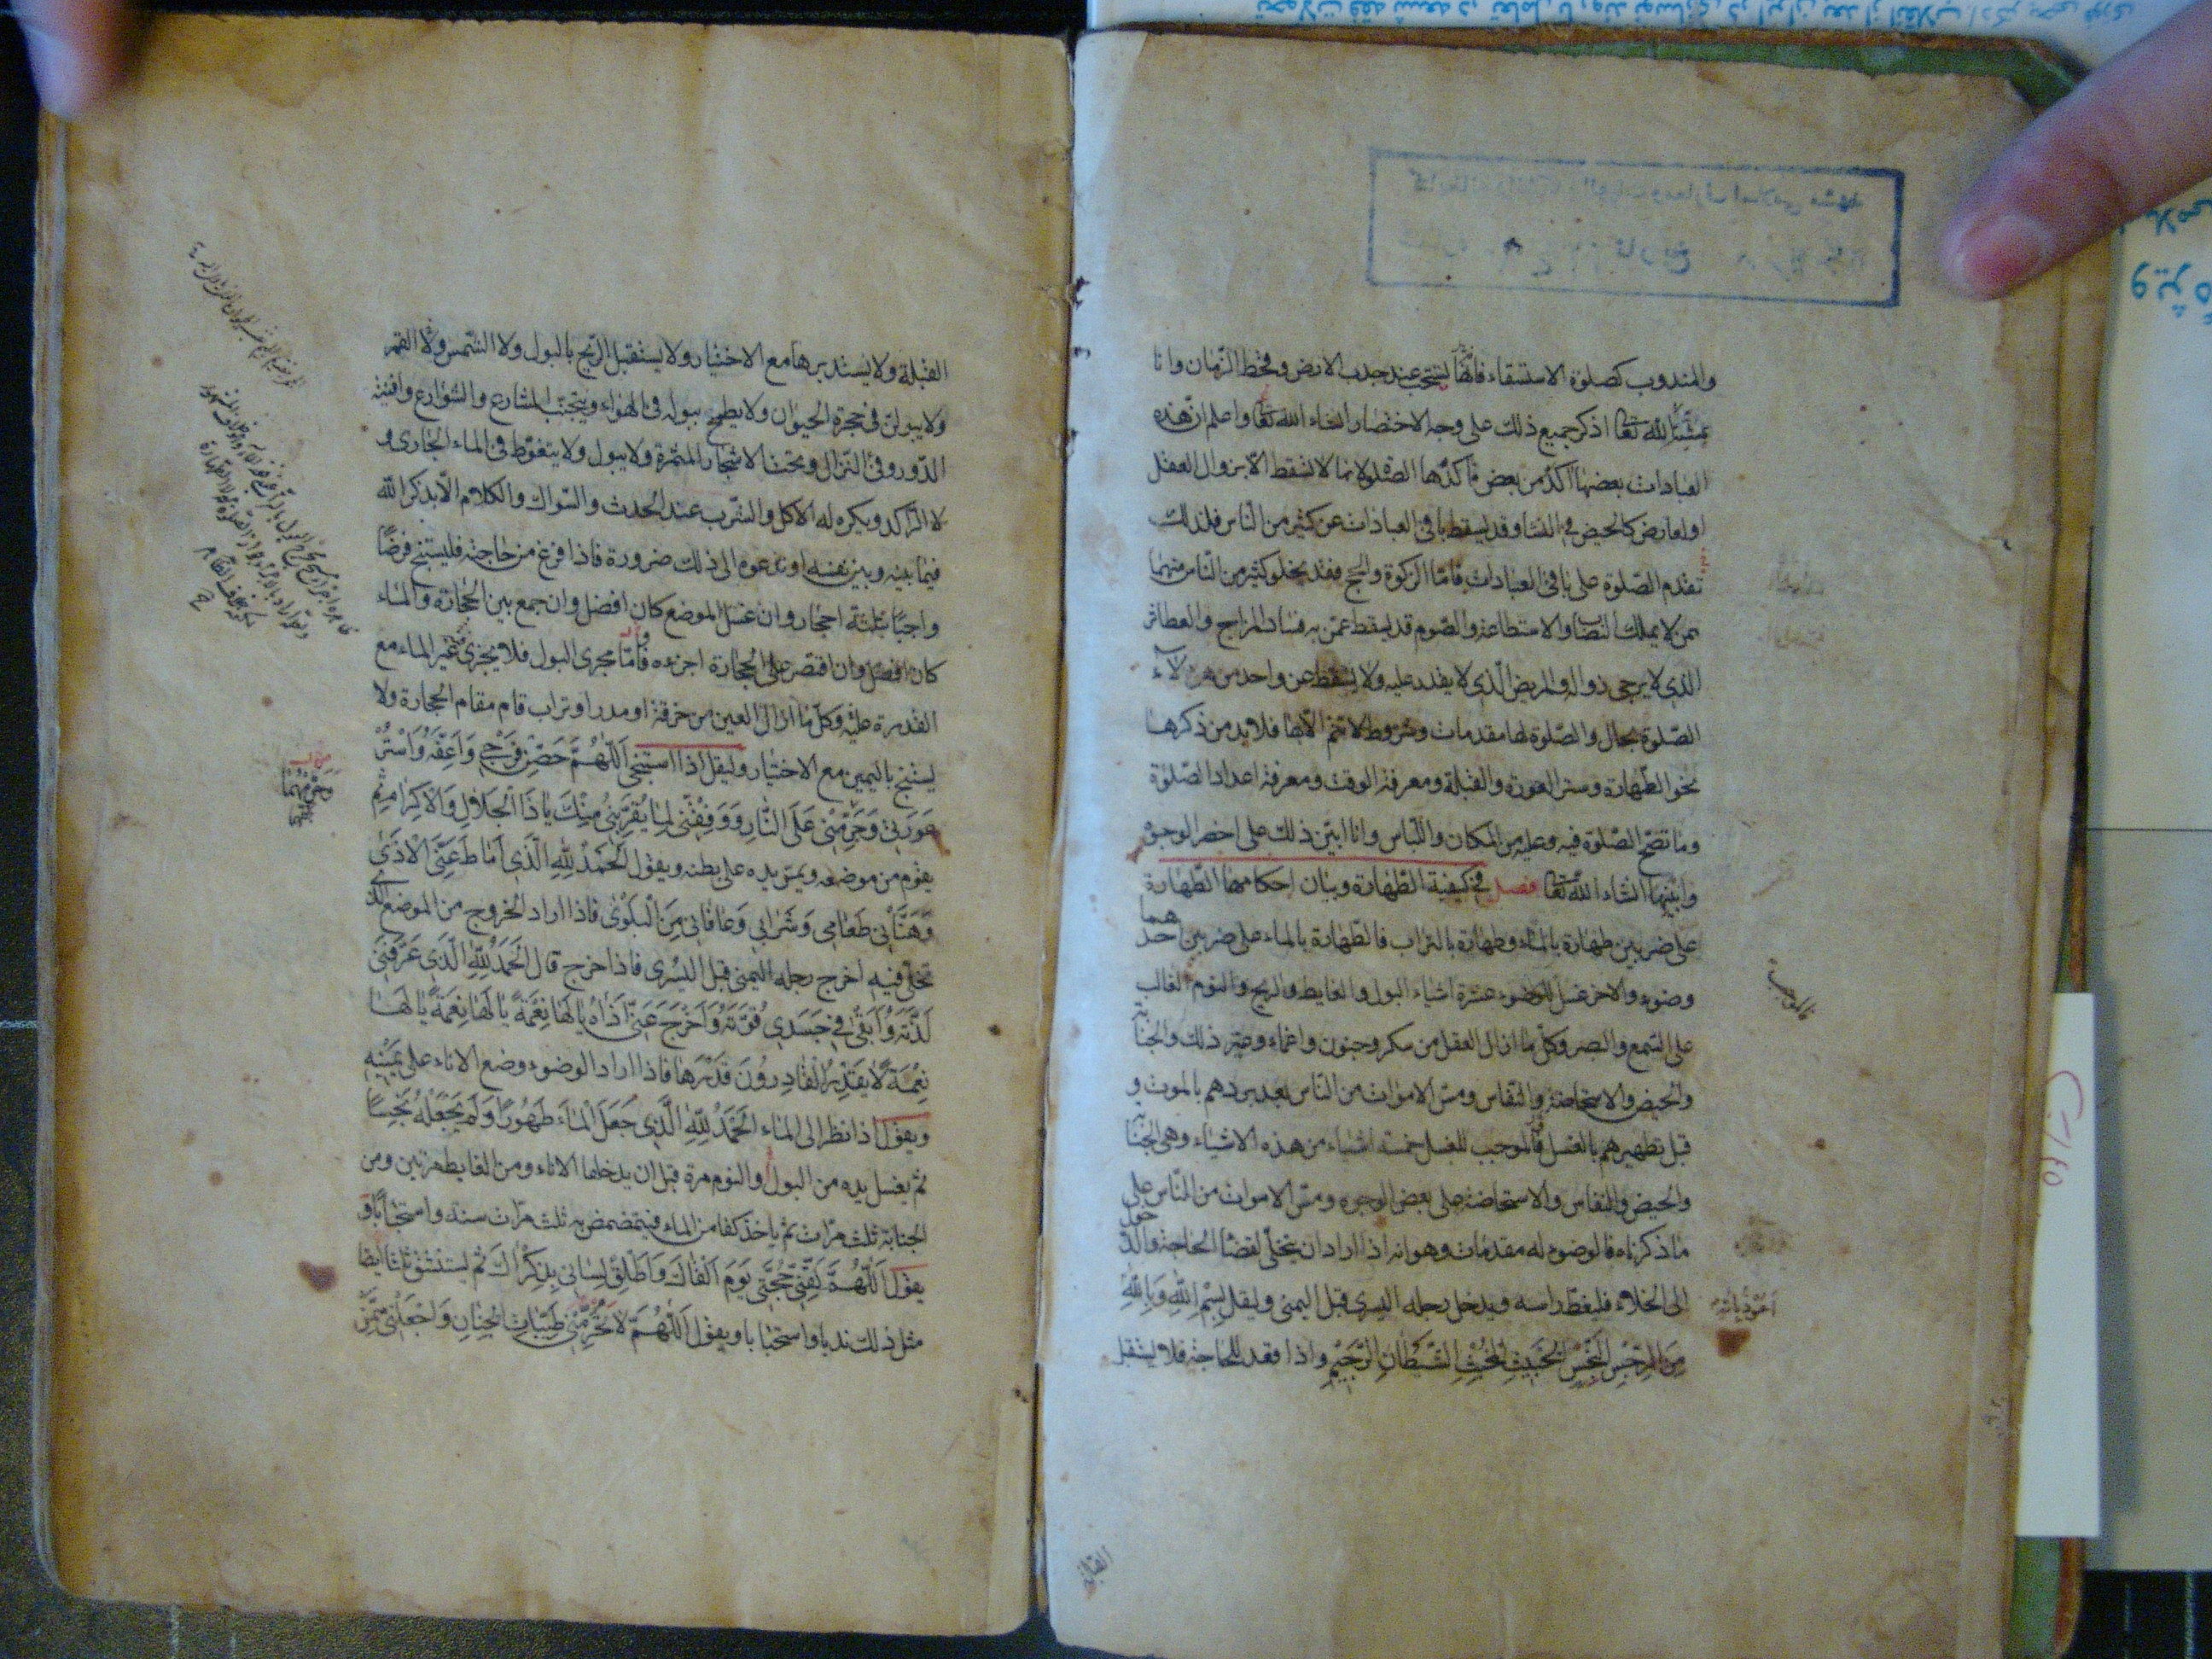 والمندوب كصلوة الاستسقاء فانها تستحب عند جدب الارض وقحط الزمان وانا
بمشية الله تعا اذكر جميع ذلك على وجه الاختصار انشاء الله تعا واعلم ان هذه
العبادات بعضها آكد من بعض فآكدها الصلوة لانها لا تسقط الا بزوال العقل
او لعارض كالحيض في النسا وقد يسقط باقي العبادات عن كثير من الناس فلذلك
تقدم الصلوة على باقي العبادات فاما الزكوة والحج فقد يخلو كثير من الناس منهما
ممن لا يملك النصاب والاستطاعة والصوم قد يسقط عمن به فساد المزاج والعطاش
الذي لا يرجى زواله والمريض الذي لا يقدر عليه ولا يسقط عن واحد من هؤلاء
الصلوة بحال والصلوة لها مقدمات وشروط لا تتم الا بها فلا بد من ذكرها
نحو الطهارة وستر العورة والقبلة ومعرفة الوقت ومعرفة اعداد الصلوة
وما تصح الصلوة فيه وعليه من المكان واللباس وانا ابين ذلك على اخصر الوجوه
وابينها انشاء الله تعا فصل في كيفية الطهارة وبيان احكامها الطهارة
على ضربين طهارة بالماء وطهارة بالتراب فالطهارة بالماء على ضربين احدهما
وضوء والاخر غسل للوضوء عشرة اشياء البول والغايط والريح والنوم الغالب
على السمع والبصر وكل ما ازال العقل من سكر وجنون واغماء وغير ذلك والجنابة
والحيض والاستحاضة والنفاس ومس الاموات من الناس بعد بردهم بالموت و
قبل تطهيرهم بالغسل فالموجب للغسل خمسة اشياء من هذه الاشياء وهي الجنابة
والحيض والنفاس والاستحاضة على بعض الوجوه ومس الاموات من الناس على
ما ذكرناه فالوضوء له مقدمات وهو انه اذا اراد ان يتخلى لقضاء الحاجة والدخول
الى الخلاء فليغط راسه ويدخل رجله اليسرى قبل اليمنى وليقل بِسْمِ اللهِ وَبِاللهِ
اَعُوذُ بِاللهِ
مِنَ الرِّجْسِ النَّجِسِ الْخَبِيثِ الْمُخْبِثِ الشَّيْطَانِ الرَّجِيْمِ واذا قعد للحاجة فلا يستقبل
القبلة
القبلة ولا يستدبرها مع الاختيار ولا يستقبل الريح بالبول ولا الشمس ولا القمر
ولا يبولن في حجرة الحيوان ولا يطمح ببوله في الهواء ويتجنب المشارع والشوارع وافنية
الدور وفئ النزال وتحت الاشجار المثمرة ولا يبول ولا يتغوط في الماء الجاري و
لا الراكد ويكره له الاكل والشرب عند الحدث والسواك والكلام الا بذكر الله
فيما بينه وبين نفسه او تدعوه الى ذلك ضرورة فاذا فرغ من حاجته فليستنج فرضًا
واجبًا بثلثة احجار وان غسل الموضع كان افضل وان جمع بين الحجارة والماء
كان افضل وان اقتصر على الحجارة اجزءه فاما مجرى البول فلا يجزى غير الماء مع
القدرة عليه وكل ما ازال العين من خرقة او مدر او تراب قام مقام الحجارة ولا
يستنج باليمين مع الاختيار وليقل اذا استنجى اَللّٰهُمَّ حَصِّنْ فَرْجِي وَاَعِفَّهُ وَاسْتُرْ
عَوْرَتِي وَحَرِّمْنِي عَلَى النَّارِ وَوَفِّقْنِي لِمَا يُقَرِّبُنِي مِنْكَ يَا ذَا الْجَلَالِ وَالْاِكْرَامِ ثم
يقوم من موضعه ويمر يده على بطنه ويقول اَلْحَمْدُ لِلّٰهِ الَّذِي اَمَاطَ عَنِّي الْاَذَى
وَهَنَّأَنِي طَعَامِي وَشَرَابِي وَعَافَانِي مِنَ الْبَلْوَى فاذا اراد الخروج من الموضع الذي
تخلى فيه اخرج رجله اليمنى قبل اليسرى فاذا خرج قال اَلْحَمْدُ لِلّٰهِ الَّذِي عَرَّفَنِي
لَذَّتَهُ وَاَبْقَى فِي جَسَدِي قُوَّتَهُ وَاَخْرَجَ عَنِّي اَذَاهُ يَا لَهَا نِعْمَةً يَا لَهَا نِعْمَةً يَا لَهَا
نِعْمَةً لَا يَقْدِرُ الْقَادِرُونَ قَدْرَهَا فاذا اراد الوضوء وضع الاناء على يمينه
ويقول اذا نظر الى الماء اَلْحَمْدُ لِلّٰهِ الَّذِي جَعَلَ الْمَاءَ طَهُورًا وَلَمْ يَجْعَلْهُ نَجِسًا
ثم يغسل يده من البول والنوم مرة قبل ان يدخلها الاناء ومن الغايط مرتين ومن
الجنابة ثلث مرات ثم ياخذ كفا من الماء فيتمضمض به ثلث مرات سنة واستحبابًا و
يقول اَللّٰهُمَّ لَقِّنِّي حُجَّتِي يَوْمَ اَلْقَاكَ وَاَطْلِقْ لِسَانِي بِذِكْرَاكَ ثم يستنشق ثلثا ايضا
مثل ذلك ندبا واستحبابا ويقول اَللّٰهُمَّ لَا تُحَرِّمْنِي طَيِّبَاتِ الْجِنَانِ وَاجْعَلْنِي مِمَّنْ